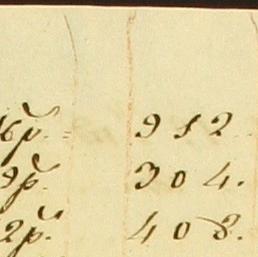 6p. = 912
9p. 304.
2p. 408.